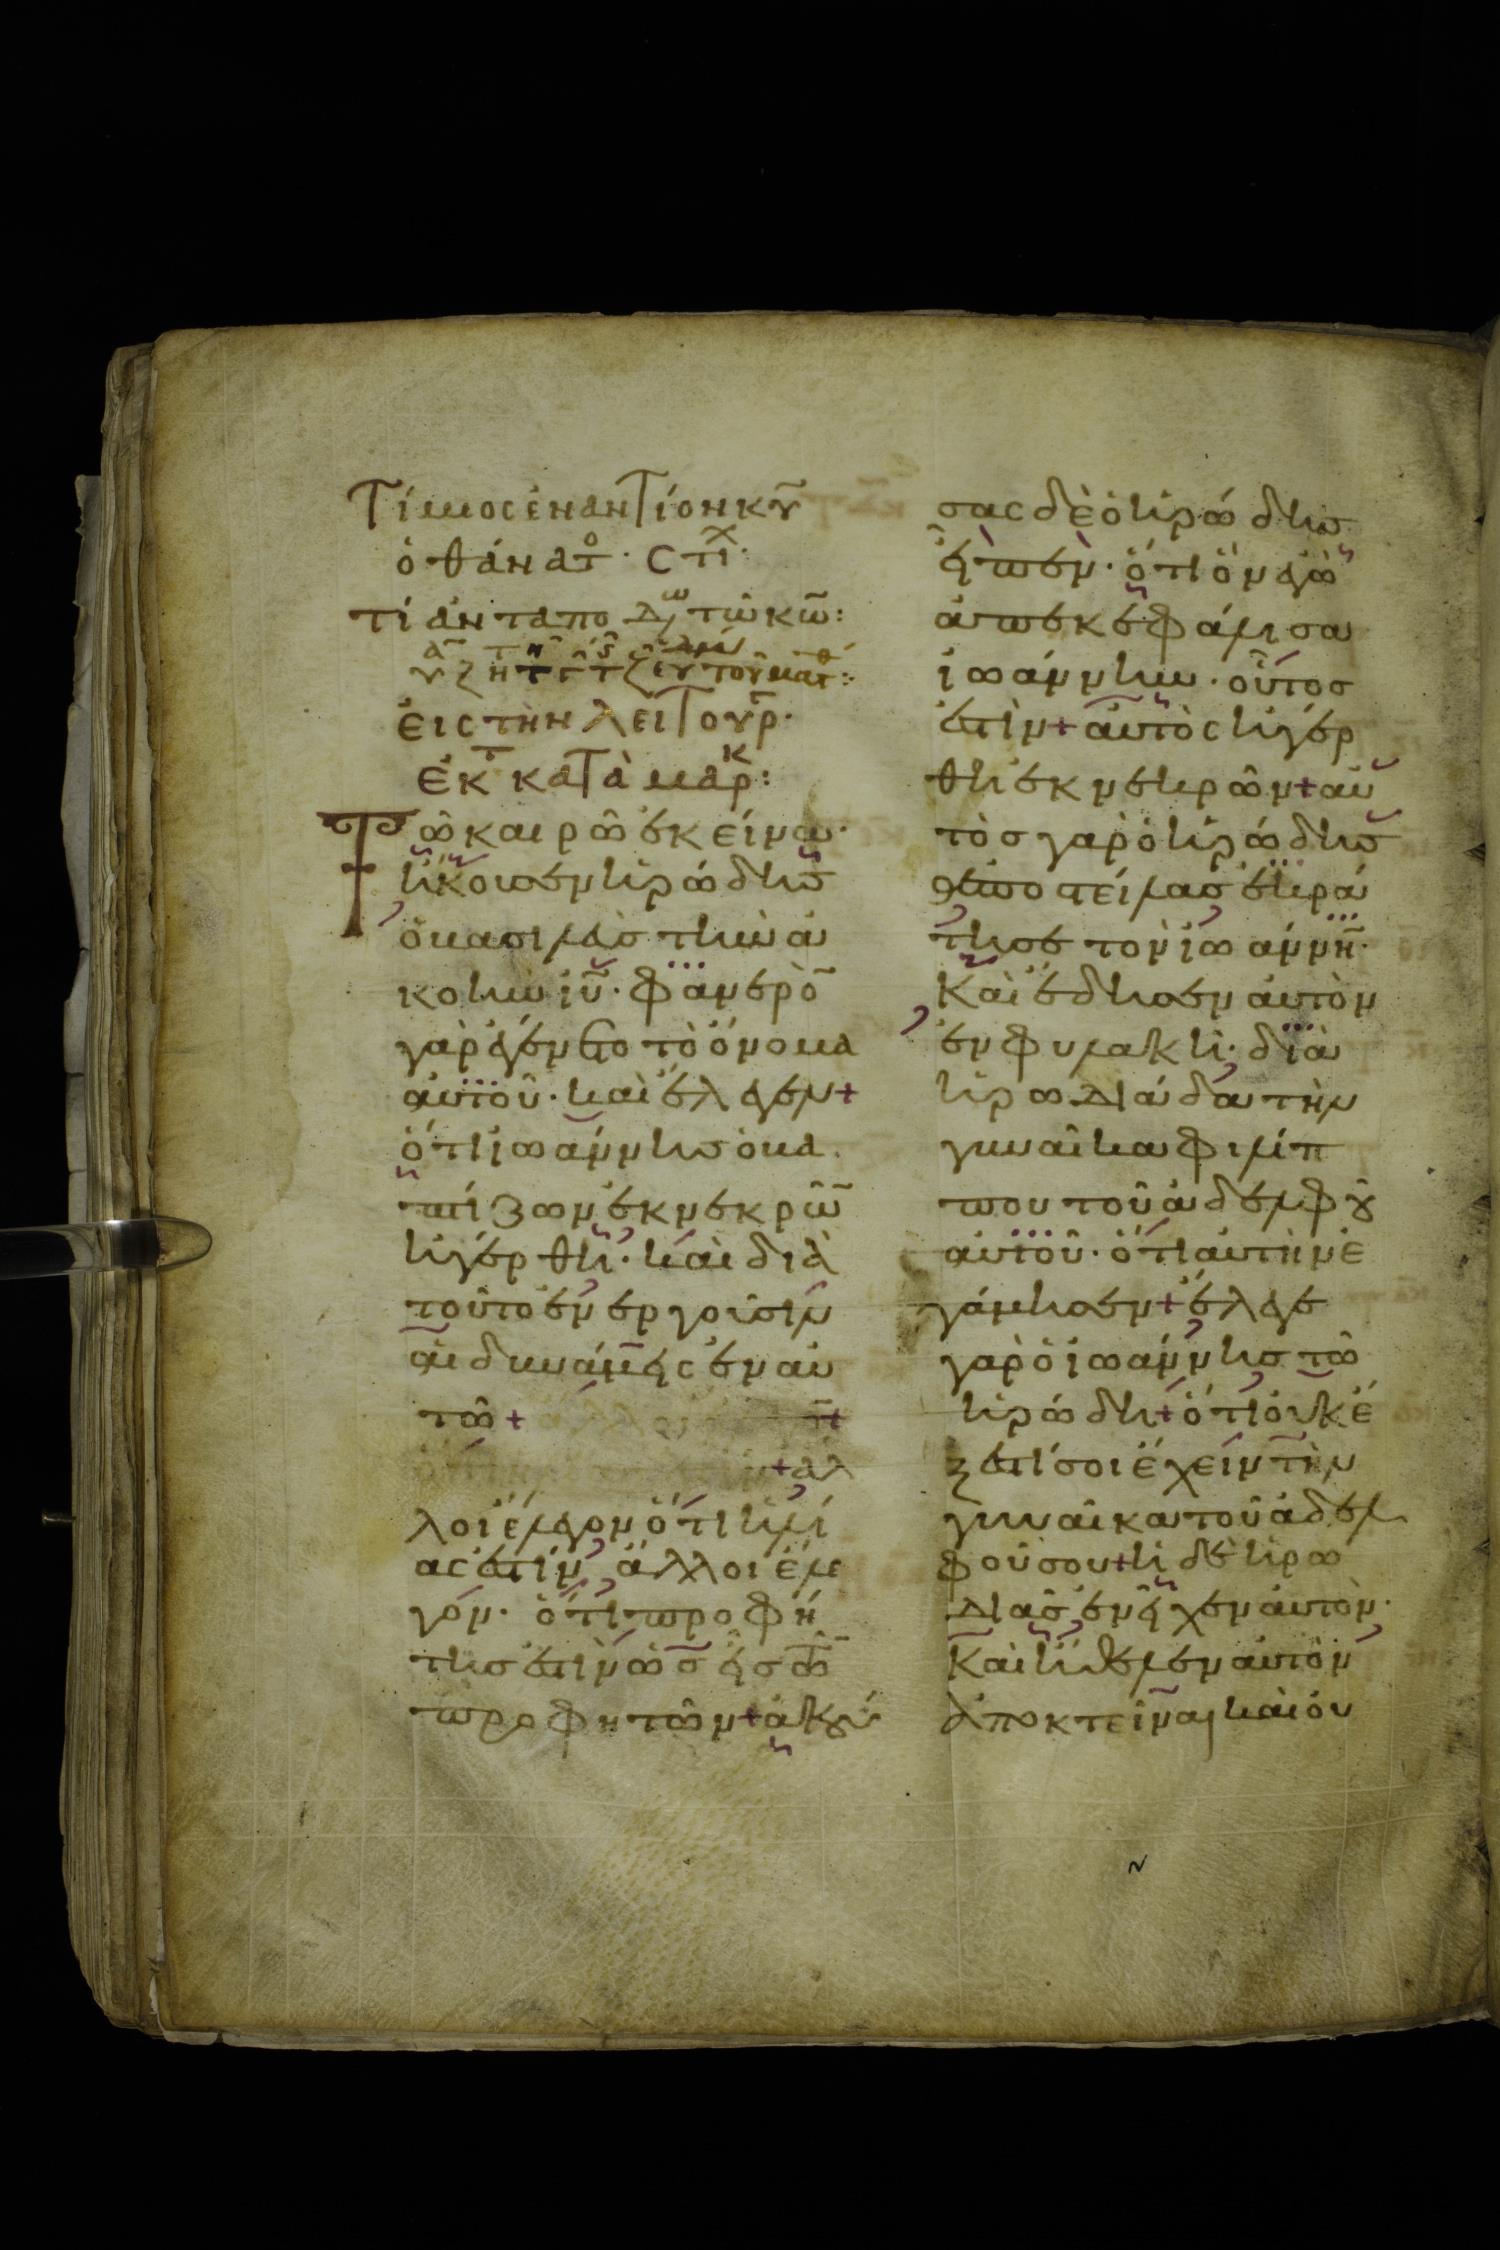 Τίμιος ἐναντίον κυ
ὁ θάνατο · Στιχ ·
τί ἀνταποδω τῶ κω :
εἰς τὴν λειτουρ ·
ἐκ τ κατὰ μαρκ :
Τῶ καιρῶ ἐκείνω ·
ἤκουσεν ἡρώδης
ὁ βασιλεὺς τὴν ἀ
κοὴν ιυ · φανερὸ
γὰρ ἐγένετο τὸ ὄνομα
αὐτοῦ · καὶ ἔλεγεν +
ὅτι ἰωάννης ὁ βα
πτίζων ἐκ νεκρῶ
ἠγέρθη · καὶ διὰ
τοῦτο ἐνεργοῦσιν
αἱ δυνάμεις ἐν αυ
τῶ +
+ ἀλ
λοι ἔλεγον ὅτι ἠλί
ας ἐστίν ἄλλοι ἔλε
γον · ὅτι προφή
της ἐστὶν ὡς εἷς τῶ
προφητῶν + ἀκού
σας δὲ ὁ ἡρώδης
εἶπεν · ὅτι ὃν ἐγὼ
ἀπεκεφάλισα
ἰωάννην · οὗτος
ἐστὶν + αὐτὸς ἠγέρ
θη ἐκ νεκρῶν + αὐ
τὸς γὰρ ὁ ἡρώδης
ἀποστείλας ἐκρά
τησε τὸν ἰωάννη ·
Καὶ ἔδησεν αὐτὸν
ἐν φυλακῆ · διὰ
ἡρωδιάδα τὴν
γυναῖκα φιλίπ
που τοῦ ἀδελφοῦ
αὐτοῦ · ὅτι αὐτὴν ἐ
γάμησεν + ἔλεγε
γὰρ ὁ ἰωάννης τῶ
ἡρώδη + ὅτι οὐκ ἔ
ξεστί σοι ἔχειν τὴν
γυναῖκα τοῦ ἀδελ
φοῦ σου + ἡ δὲ ἡρω
διὰς ἐνεῖχεν αὐτὸν ·
Καὶ ἤθελεν αὐτὸν
ἀποκτεῖναι καὶ οὐ